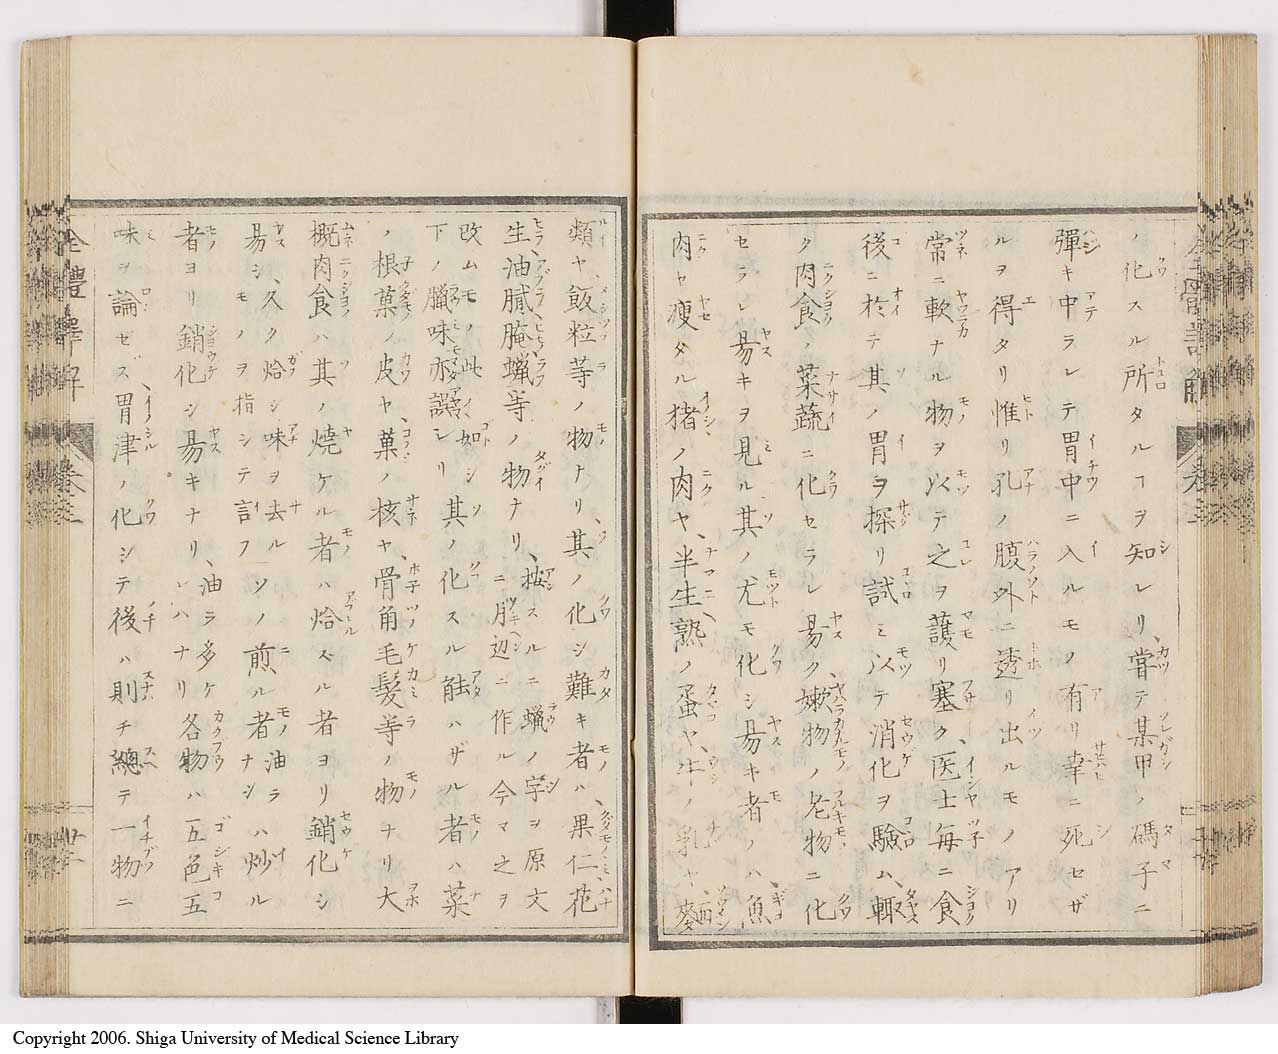 ノ化スル所タルヿヲ知レリ、嘗テ某甲ノ碼子ニ
彈キ中ラレテ胃中ニ入ルモノ有リ幸ニ死セザ
ルヲ得タリ惟リ孔ノ腹外ニ透リ出ルモノアリ
常ニ軟ナル物ヲ以テ之ヲ護リ塞ク、医士毎ニ食
後ニ於テ其ノ胃ヲ探リ試ミ以テ消化ヲ驗ム、輙
ク肉食ノ菜蔬ニ化セラレ昜ク嫰物ノ老物ニ化
セラレ昜キヲ見ル其ノ尤モ化シ昜キ者ノハ魚
肉ヤ瘦タル猪ノ肉ヤ、半生熟ノ蛋ヤ、牛ノ乳ヤ、麥
類ヤ、飯粒等ノ物ナリ、其ノ化シ難キ者ハ、果仁花
生、油膩腌蝋等ノ物ナリ、按スルニ蝋ノ字ヲ原文ニ月辺ニ作ル今マ之ヲ
改ムモノ此ノ如シ下ノ臘味亦誤シリ其ノ化スル能ハザル者ハ菜
ノ根菓ノ皮ヤ、菓ノ核ヤ、骨角毛髮等ノ物ナリ大
概肉食ハ其ノ燒ケル者ハ烚スル者ヨリ銷化シ
昜シ、久ク烚シ味ヲ去ルモノヲ指シテ言フソノ煎ル者ナシ油ラハ炒ル
者ヨリ銷化シ昜キナリ、油ラ多ケレハナリ各物ハ五色五
味ヲ論ゼズ、胃津ノ化シテ後ハ則チ總テ一物ニ
全體譯解
卷三
Copyright 2006. Shiga University of Medical Science Library